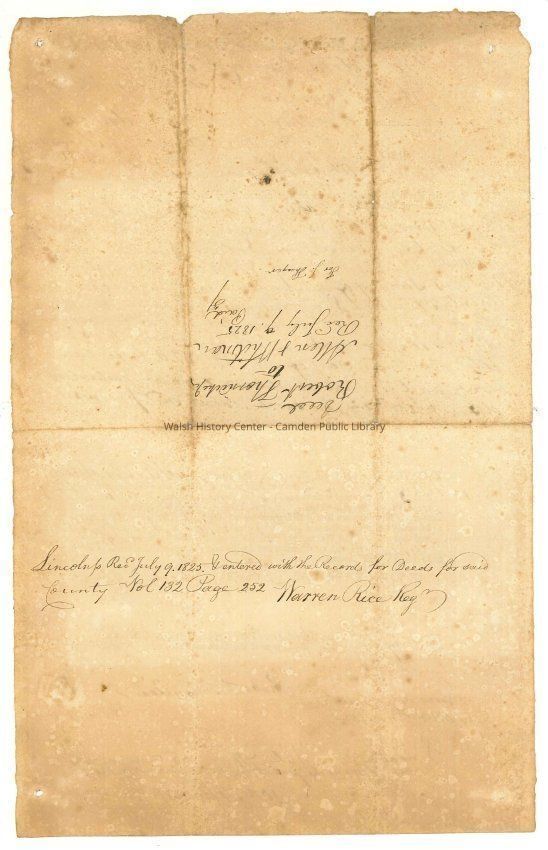 Deed
Robert Thorndike
to
Allen & Whitman
Rec July 9. 1825
Paid
for J. Thayer
Walsh History Center - Camden Public Library
Lincoln ss Rec July 9. 1825. & entered with the Records for Deeds for said
County Vol 132 Page 252 Warren Rice Regr